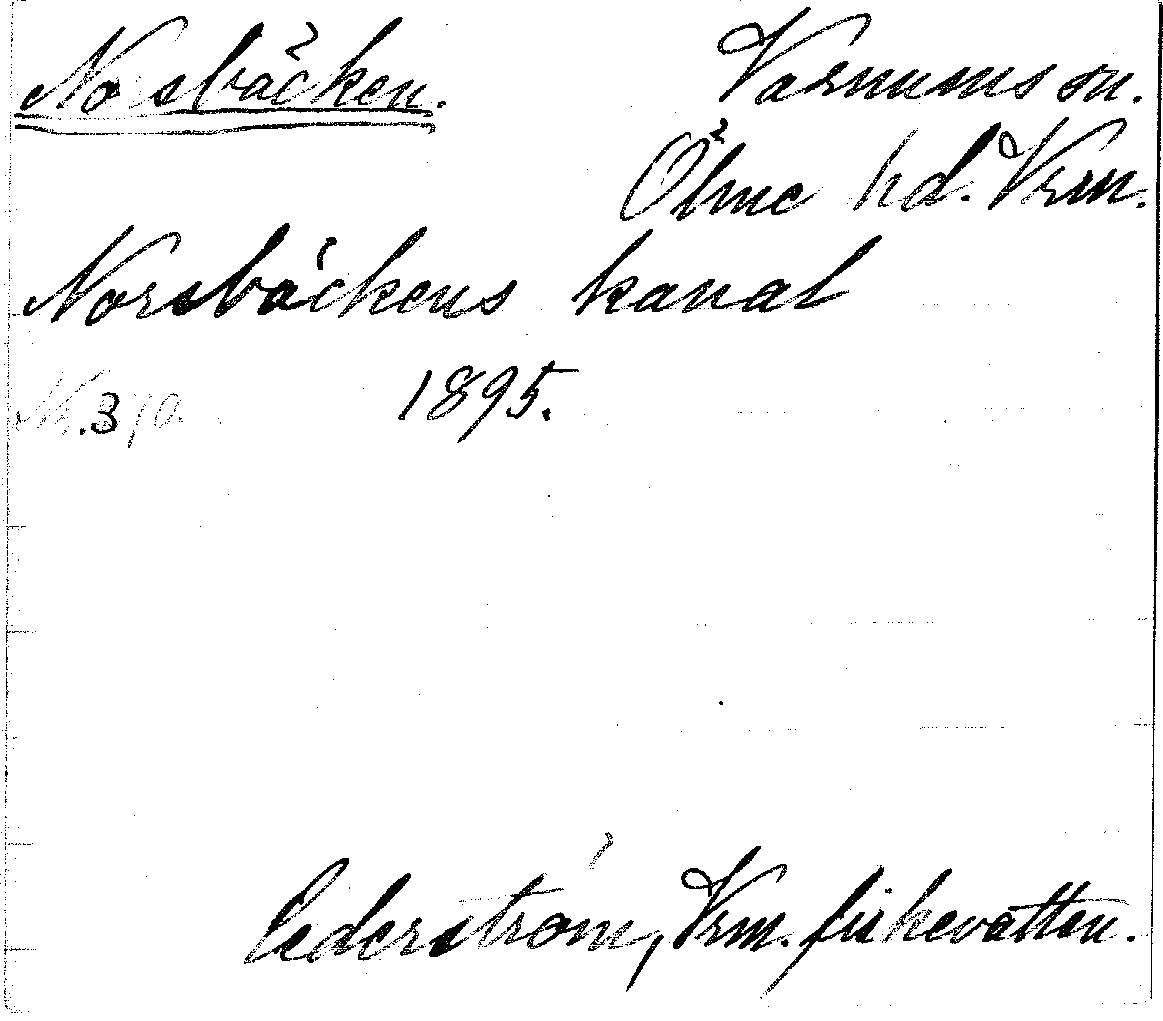 Norsbäcken. Varnums sn.
Ölme hd. Vrm.
Norsbäckens kanal
1895.
Cederström, Vrm. fiskevatten.